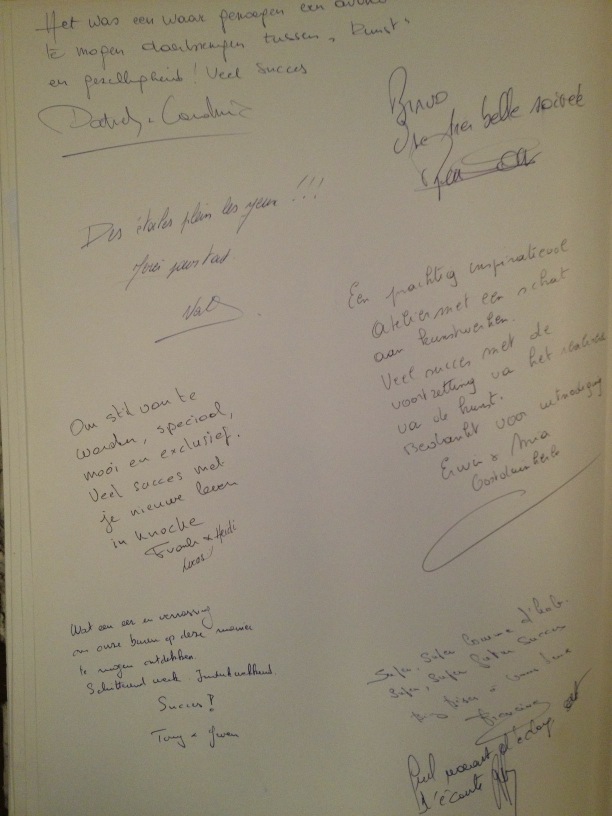 Het was een waar genoegen een avond
te mogen doorbrengen tussen "kunst"
en gezelligheid! Veel succes
Bravo
Une très belle soirée
Des étoiles plein les yeux !!!
Een prachtig inspirativol
atelier met een schat
aan kunstwerken.
Veel succes met de
voortzetting va het realise
va de kunst.
Bedankt voor uitnodiging
Erwin & Ania
Om stil van te
worden, speciaal,
mooi en exclusief.
Veel succes met
je nieuwe leven
in Knocke
Frank & Heidi
Wat een eer en verrassing
om onze buren op deze manier
te mogen ontdekken.
Schitterend werk. Indrukwekkend.
Succes!
Tony & Gwen
Super, super comme d'hab.
Super, super succès
Francine
Quel moment d'éclat et
d'écoute